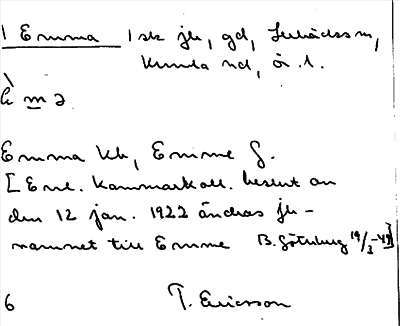 1 Emma 1 sk jb, gd, Simtuna hd,
Kumla sn, ör. l.
è m ə
Emma kb, Emme G.
[Enl. Kammarkoll. beslut av
den 12 jan. 1922 ändras jb-
namnet till Emme B. Göteborg 19/3-49]
6 T. Ericsson